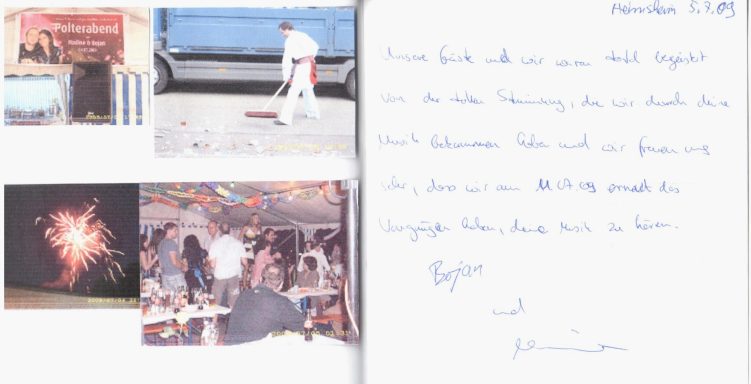 Polterabend
von
Nadine & Bojan
5.7.09
Unsere Gäste und wir waren total begeistert
von der tollen Stimmung, die wir durch deine
Musik bekommen haben und wir freuen uns
sehr, dass wir am 11.07.09 erneut das
Vergnügen haben, deine Musik zu hören.
Bojan
und